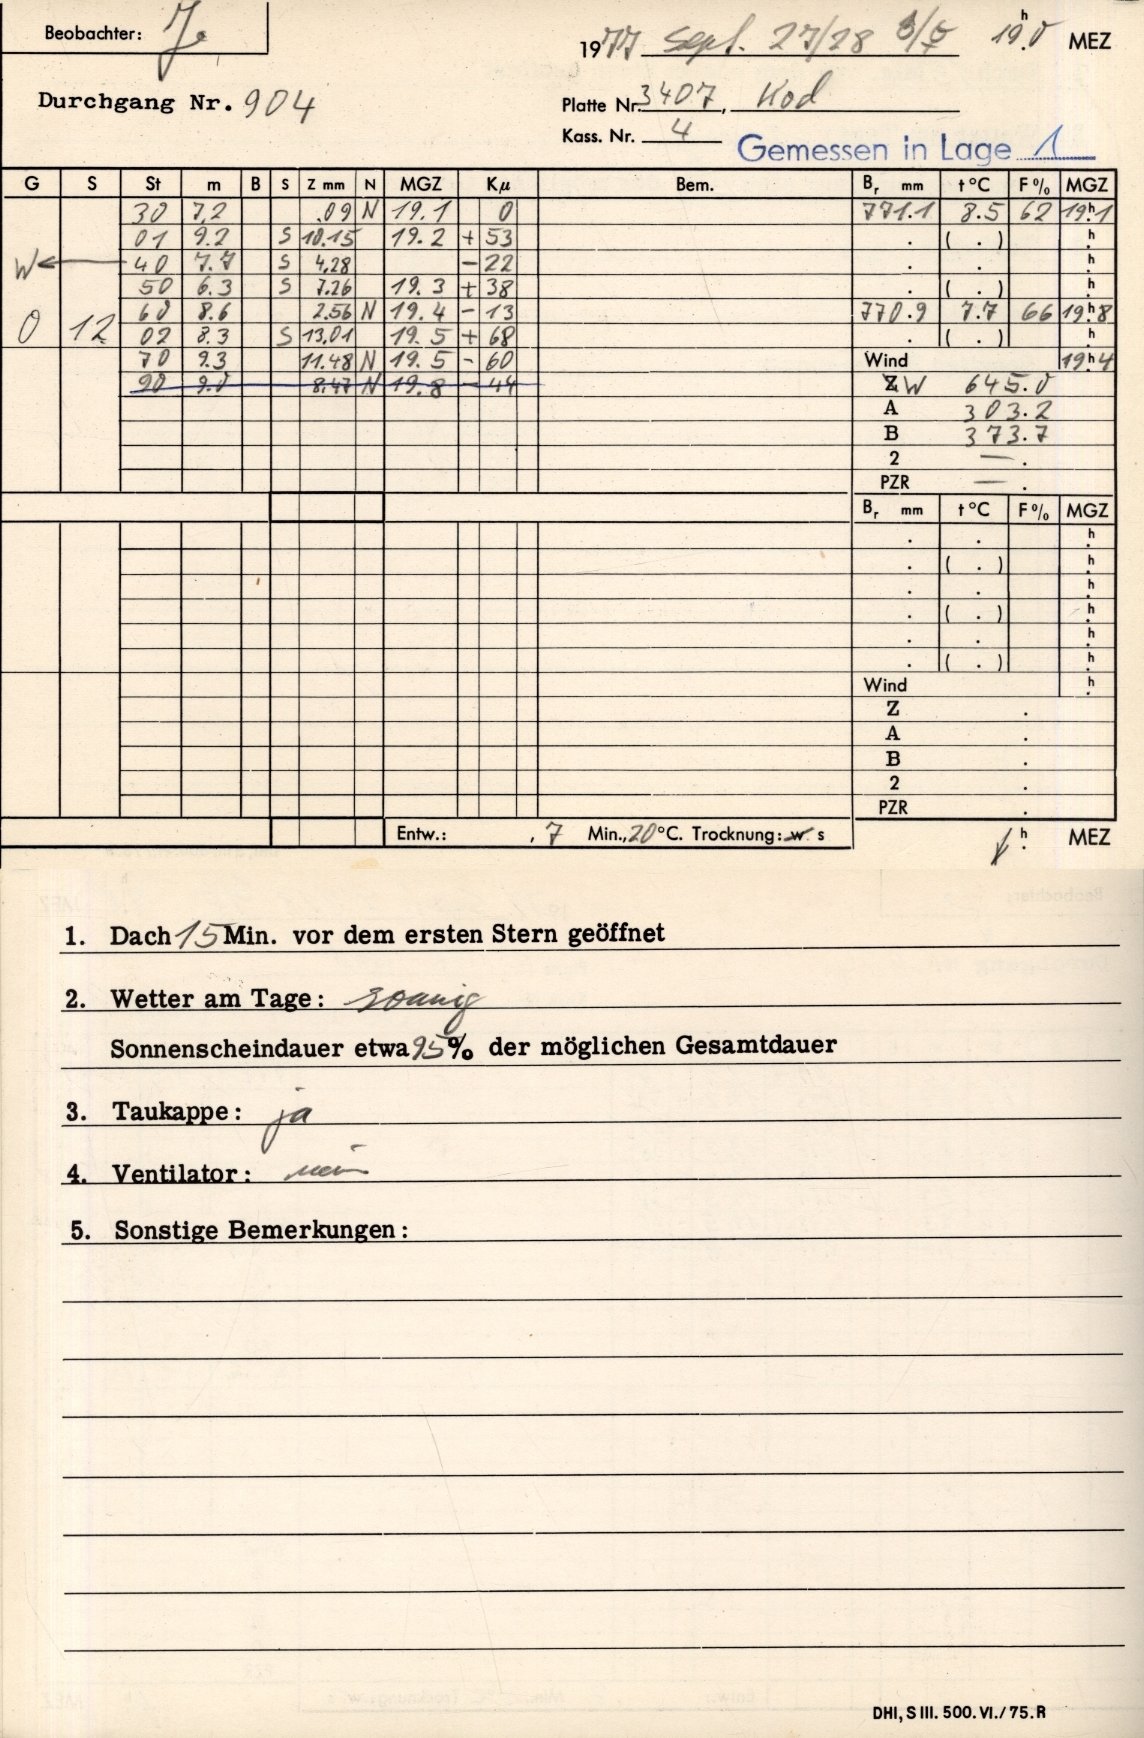 Beobachter: Je
1977 Sept. 27/28 19h.0 MEZ
Durchgang Nr. 904
Platte Nr. 3407, Kod
Kass. Nr. 4
Gemessen in Lage 1
G S St m B S Z mm N MGZ Kμ Bem. Br mm t°C F% MGZ
30 7.2 .09 N 19.1 0 771.1 8.5 62 19h.1
01 9.2 S 10.15 19.2 + 53 . ( . ) h.
W 40 7.7 S 4.28 - 22 . . h.
50 6.3 S 7.26 19.3 + 38 . ( . ) h.
0 12 60 8.6 2.56 N 19.4 - 13 770.9 7.7 66 19h.8
02 8.3 S 13.01 19.5 + 68 . ( . ) h.
70 9.3 11.48 N 19.5 - 60 Wind 19h.4
90 9.0 8.47 N 19.8 - 44 Z W 645.0
A 303.2
B 373.7
2 — .
PZR — .
Br mm t°C F% MGZ
. . h.
. ( . ) h.
. . h.
. ( . ) h.
. . h.
. ( . ) h.
Wind h.
Z .
A .
B .
2 .
PZR .
Entw.: , 7 Min., 20 °C. Trocknung: w s
h. MEZ
1. Dach 15 Min. vor dem ersten Stern geöffnet
2. Wetter am Tage: sonnig
Sonnenscheindauer etwa 95% der möglichen Gesamtdauer
3. Taukappe: ja
4. Ventilator: nein
5. Sonstige Bemerkungen:
DHI, S III. 500. VI./75. R